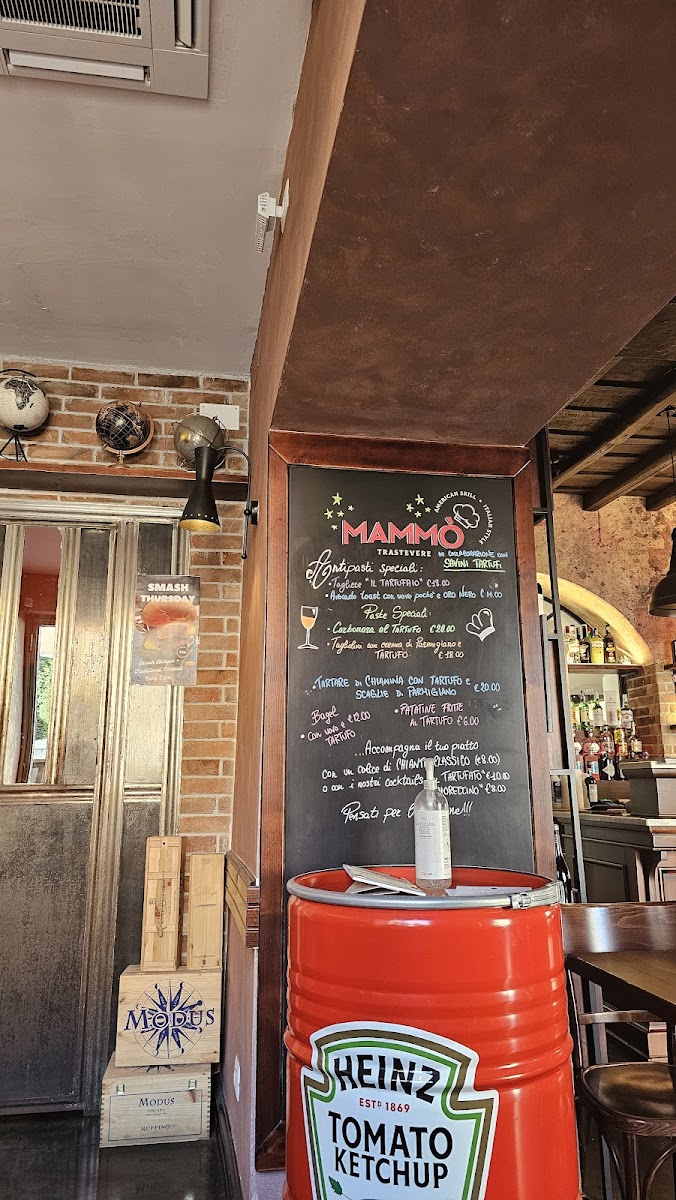 AMERICAN SKILL • ITALIAN STYLE
MAMMÒ
TRASTEVERE
IN COLLABORAZIONE CON
SAVINI TARTUFI
Antipasti speciali:
• Tagliere "IL TARTUFAIO" €18.00
• Avocado toast con uovo pochè e ORO NERO € 14.00
Paste Speciali:
• Carbonara al TARTUFO €20.00
• Tagliolini con crema di Parmigiano e
TARTUFO € 18.00
• TARTARE DI CHIANINA CON TARTUFO e
SCAGLIE DI PARMIGIANO € 20.00
Bagel
• CON UOVO e €12.00
TARTUFO
• PATATINE FRITTE
AL TARTUFO € 6.00
...Accompagna il tuo piatto
Con un calice di CHIANTI CLASSICO (€8.00)
o con i nostri cocktails
TARTUFATO" €10.00
€8.00
Pensati per
SMASH
THURSDAY
MODUS
MODUS
TOSCANA
RUFFINO
HEINZ
ESTD 1869
TOMATO
KETCHUP